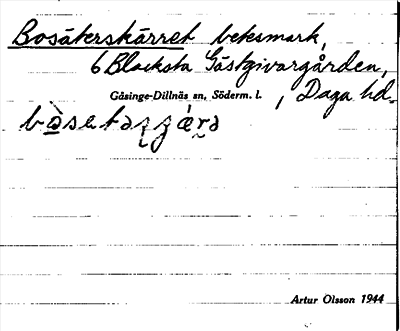 Bosäterskärret betesmark,
6 Blacksta Gästgivargården,
Gåsinge-Dillnäs sn, Söderm. l. , Daga hd.
Artur Olsson 1944